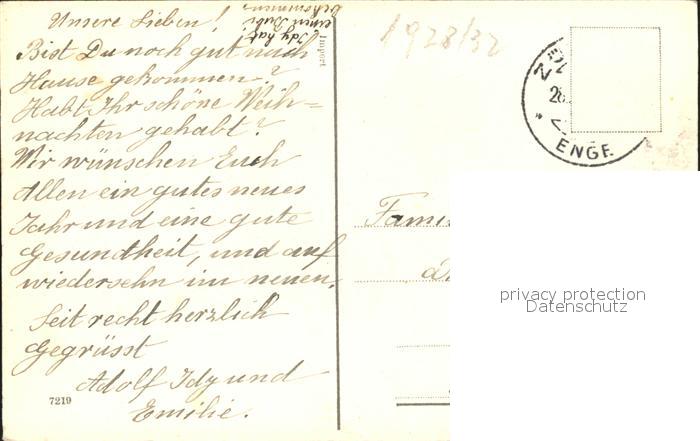 Unsere Lieben!
Idy hat
einen Bubi
bekommen!
Bist Du noch gut nach
Hause gekommen?
Habt Ihr schöne Weih=
nachten gehabt?
Wir wünschen Euch
Allen ein gutes neues
Jahr und eine gute
Gesundheit, und auf
wiedersehn im neuen.
Seit recht herzlich
Gegrüsst
Adolf Idy und
Emilie.
7219
Import
1928/32
ENGE
privacy protection
Datenschutz